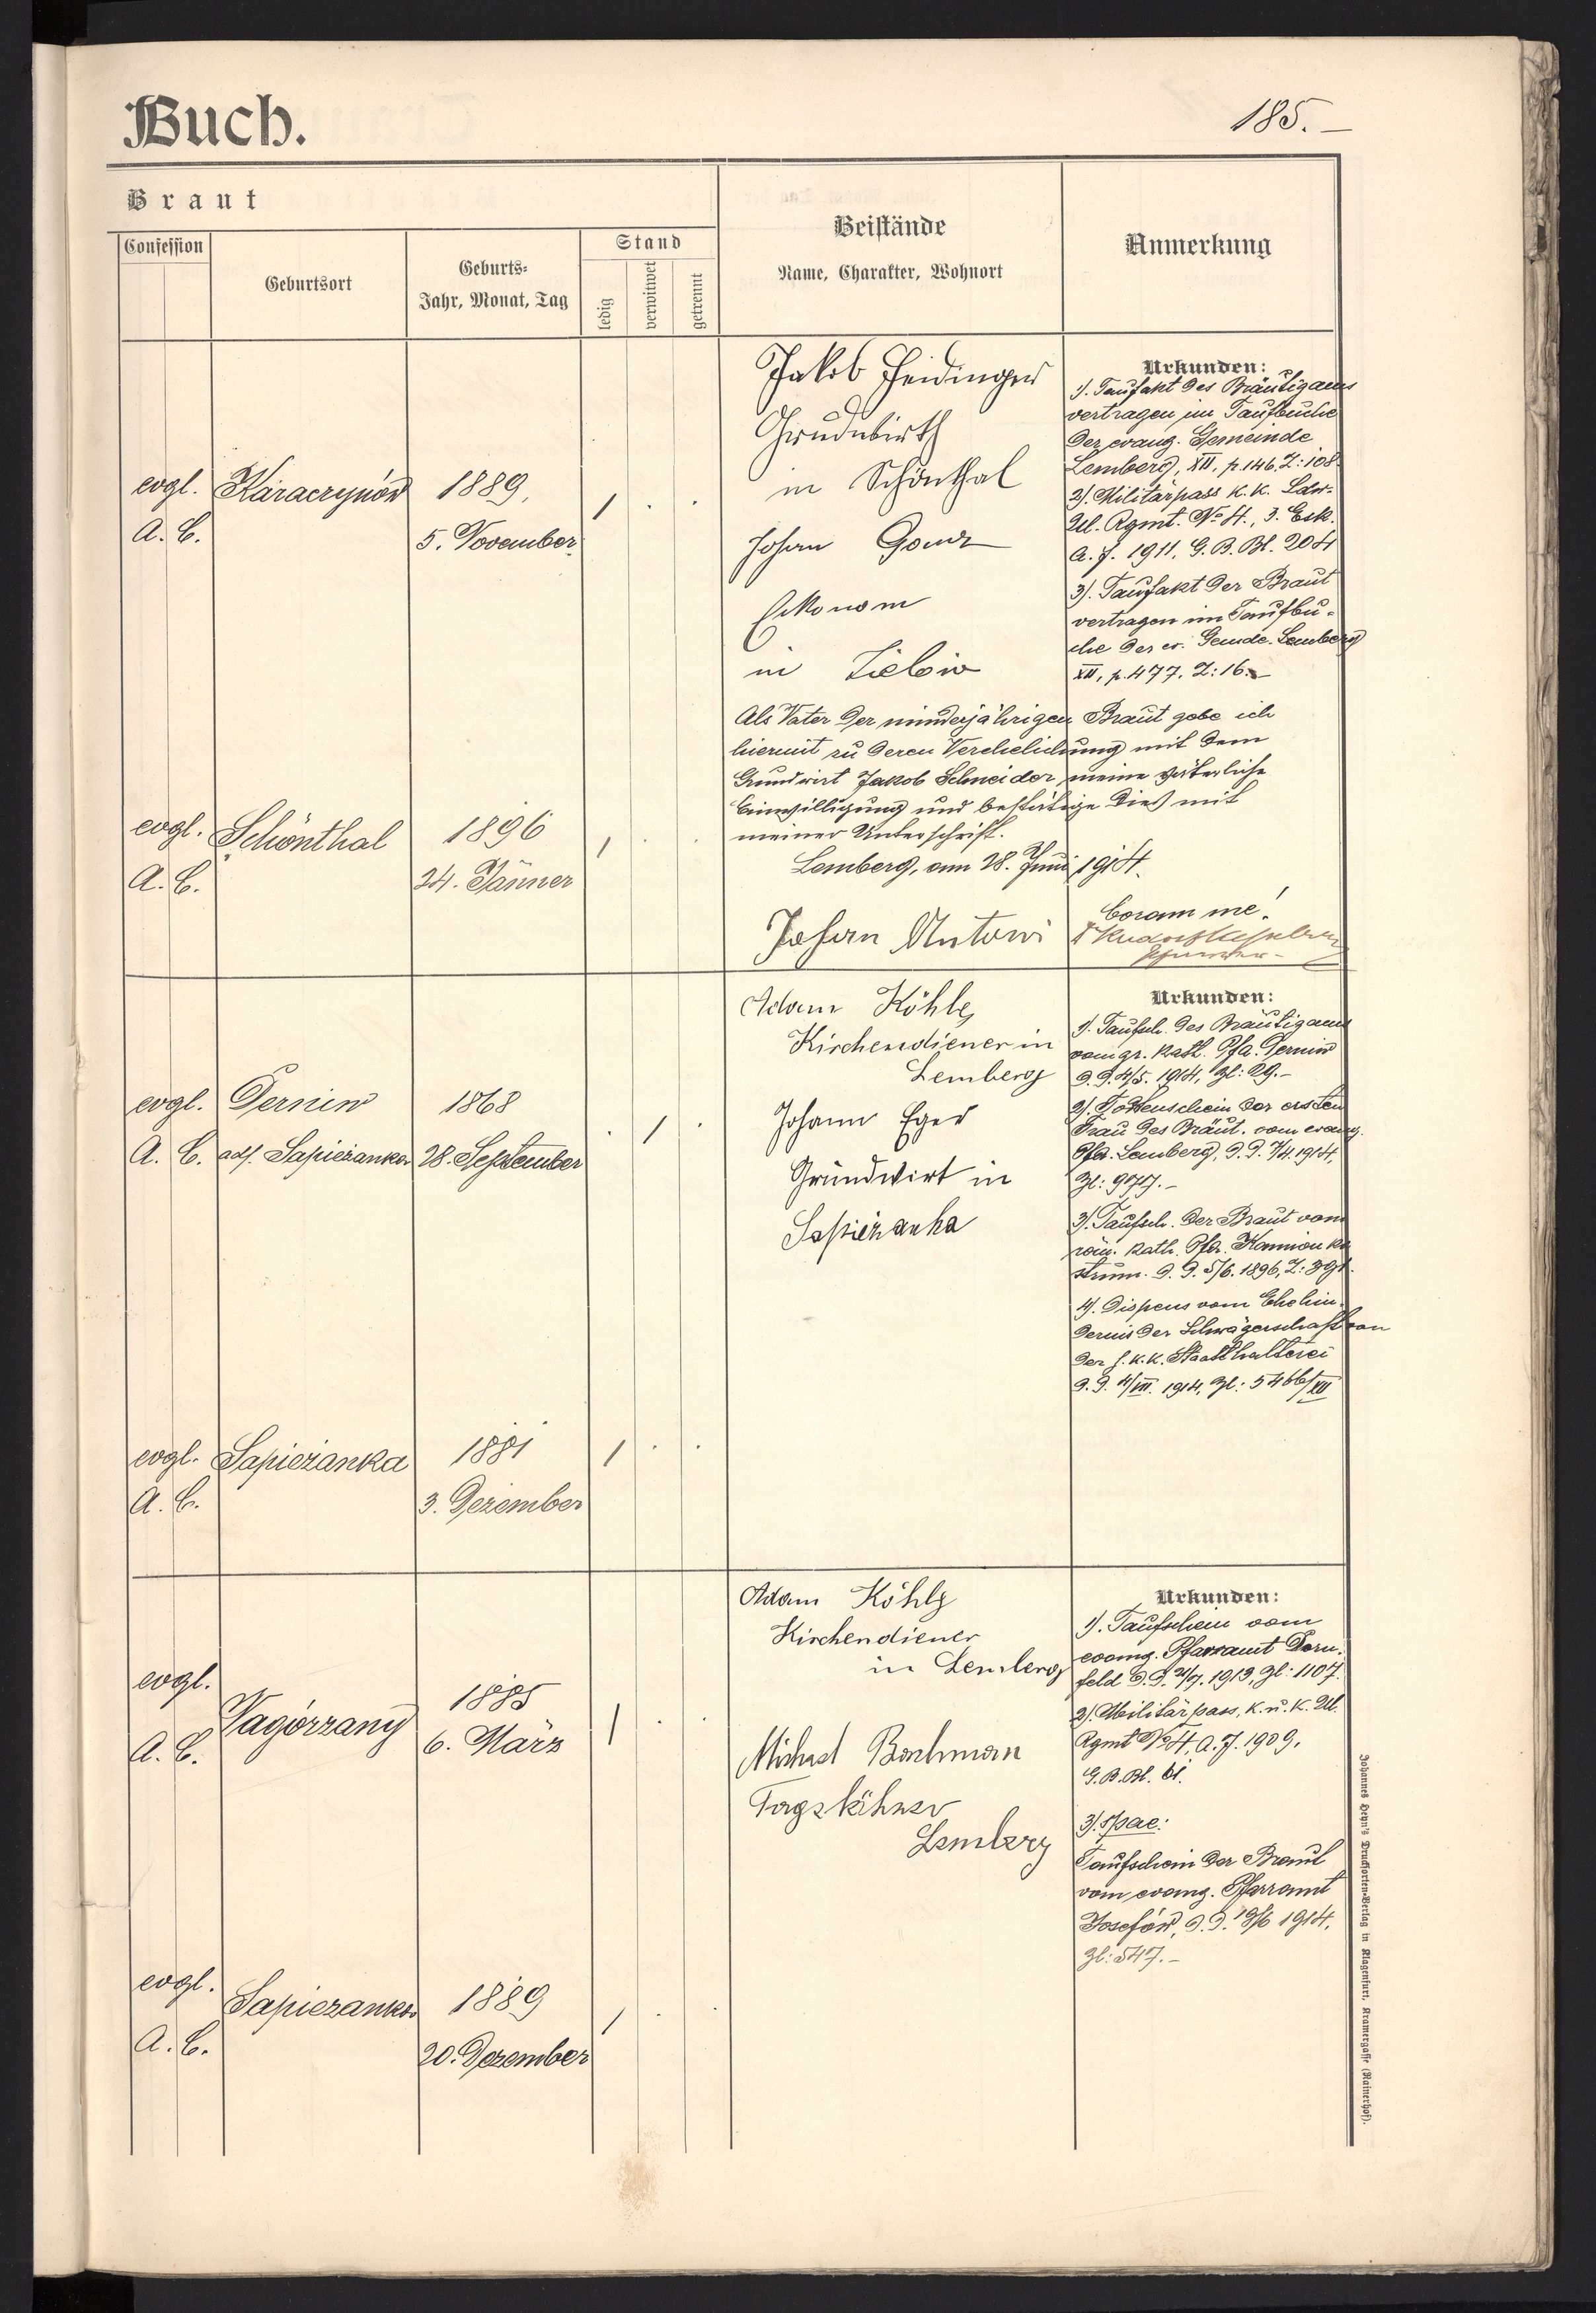 Buch.
185.-
Braut
Confession
Geburtsort
Geburts-
Jahr, Monat, Tag
Stand
ledig
verwitwet
getrennt
Beistände
Name, Charakter, Wohnort
Anmerkung
evgl.
A. C.
Karaczynów
1889,
5. November
Jakob
Grundwirth
in Schönthal
Johan
Oekonom
in
Urkunden:
1). Taufakt des Bräutigams
vertragen im Taufbuche
der evang. Gemeinde
Lemberg, XII, p. 146, Z: 108.
2). Militärpass k. k. Ldw-
Ul. Rgmt. No 4., 3. Esk.
A. J. 1911, G. B. Bl. 204
3). Taufakt der Braut
vertragen im Taufbu-
che der ev. Gemde. Lemberg
XII, p. 477, Z: 16.-
evgl.
A. C.
Schönthal
1896
24. Jänner
Als Vater der minderjährigen Braut gebe ich
hiermit zu deren Verehelichung mit dem
Grundwirt Jakob Schneider meine väterliche
Einwilligung und bestätige dies mit
meiner Unterschrift.
Lemberg, am 28. Juni 1914.
Johan
Coram me!
evgl.
A. C.
Dernin
adf. Sapieżanka
1868
28. September
Adam Köhle,
Kirchendiener in
Lemberg
Johann Eger
Grundwirt in
Sapieżanka
Urkunden:
1). Taufsch. des Bräutigams
vom gr. kath. Pfa. Dernin
d. d. 4/5. 1914, Zl: 29.-
2). Todtenschein der ersten
Frau des Bräut. vom evang.
Pfa. Lemberg, d. d. 7/4. 1914,
Zl:
3). Taufsch. der Braut vom
röm. kath. Pfa. Kamionka
strum. d. d. 5/6. 1896, Z:
4). Dispens vom Ehehin-
dernis der Schwägerschaft von
der k. k. Statthalterei
d. d. 4/VII. 1914, Zl: 5466/XII
evgl.
A. C.
Sapieżanka
1881
3. Dezember
evgl.
A. C.
Zagórzany
1885
6. März
Adam Köhle
Kirchendiener
in Lemberg
Michael Bachman
Tagslöhner
Lemberg
Urkunden:
1). Taufschein vom
evang. Pfarramt Dorn-
feld d. d. 21/7. 1913, Zl: 1107.
2). Militärpass, k. u. k. Ul.
Rgmt No 4, A. J. 1909,
G. B. Bl. 61.
3).
Taufschein der Braut
vom evang. Pfarramt
Josefów, d. d. 19/6 1914,
Zl: 547.-
evgl.
A. C.
Sapiezanka
1889
20. Dezember
Johannes Heyn's Drucksorten-Verlag in Klagenfurt, Kramergasse (Rainerhof).